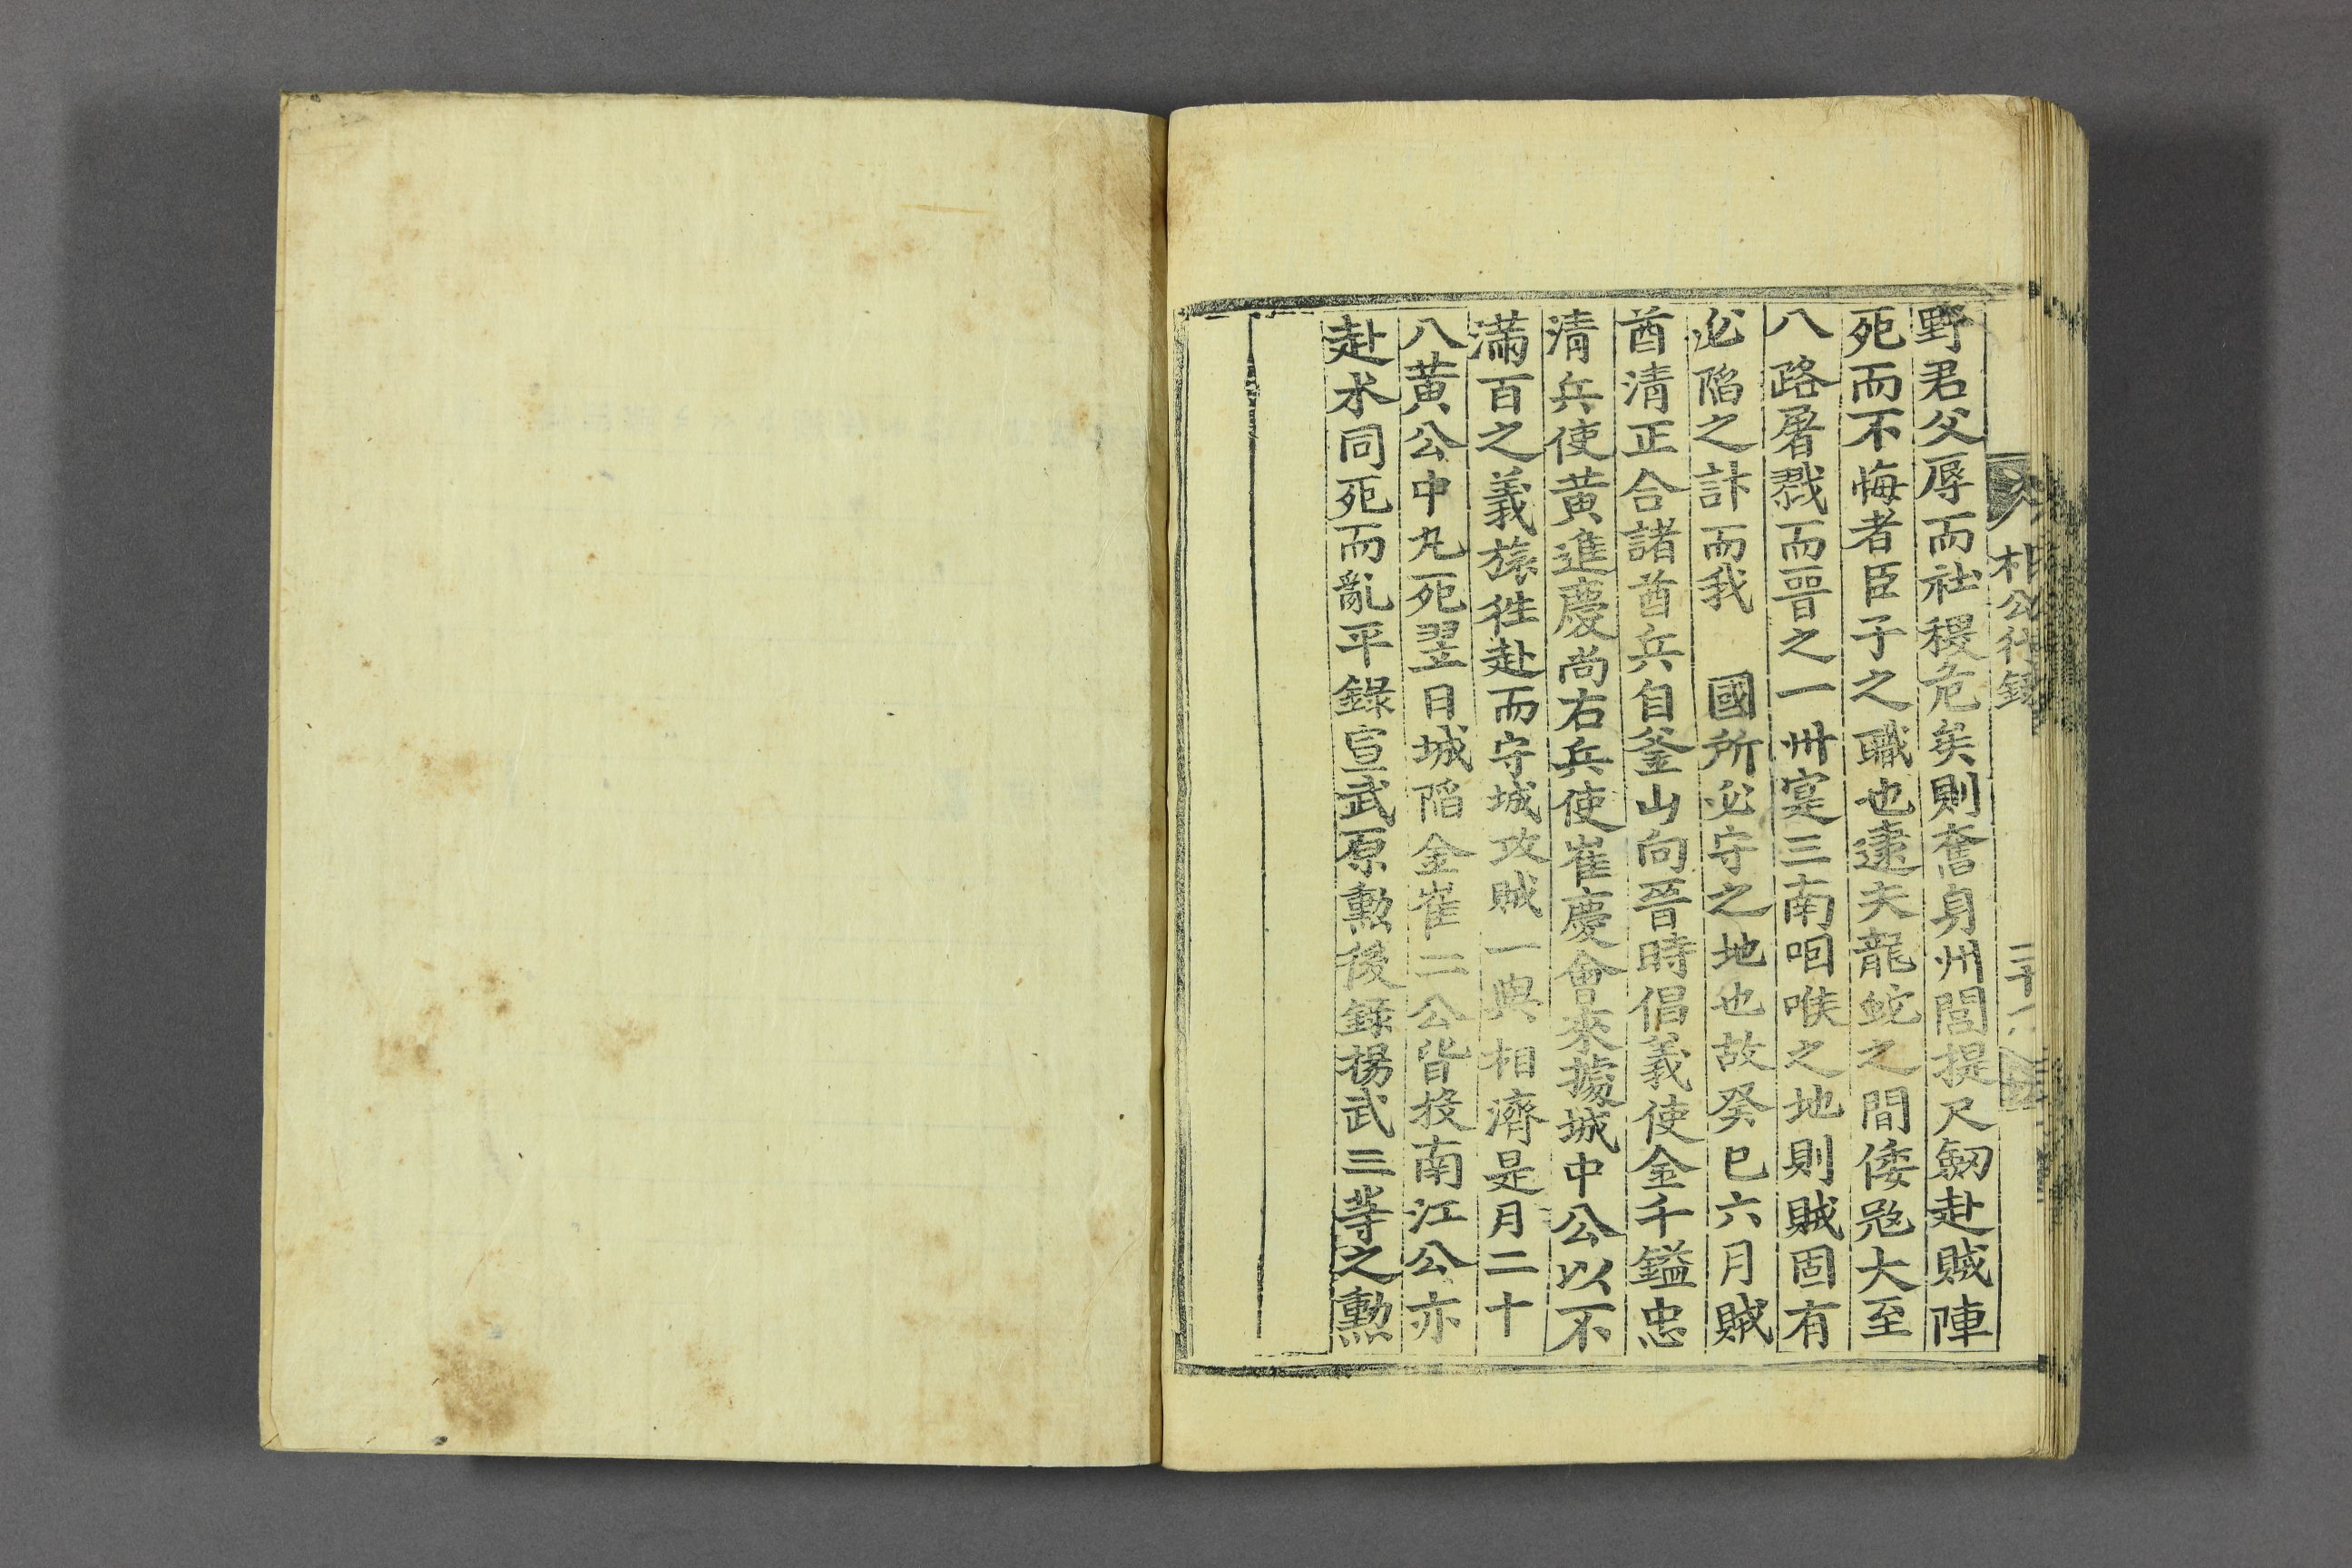 朴公行錄
野君父辱而社稷危矣則奮身州閭提尺劒赴賊陣
死而不悔者臣子之職也逮夫龍蛇之間倭冦大至
八路屠戮而晋之一州寔三南咽喉之地則賊固有
必陷之計而我 國所必守之地也故癸巳六月賊
酋清正合諸酋兵自釜山向晋時倡義使金千鎰忠
淸兵使黃進慶尙右兵使崔慶會來據城中公以不
滿百之義旅徃赴而守城攻賊一與相濟是月二十
八黃公中丸死翌日城陷金崔二公皆投南江公亦
赴水同死而亂平錄宣武原勳後錄楊武三等之勳